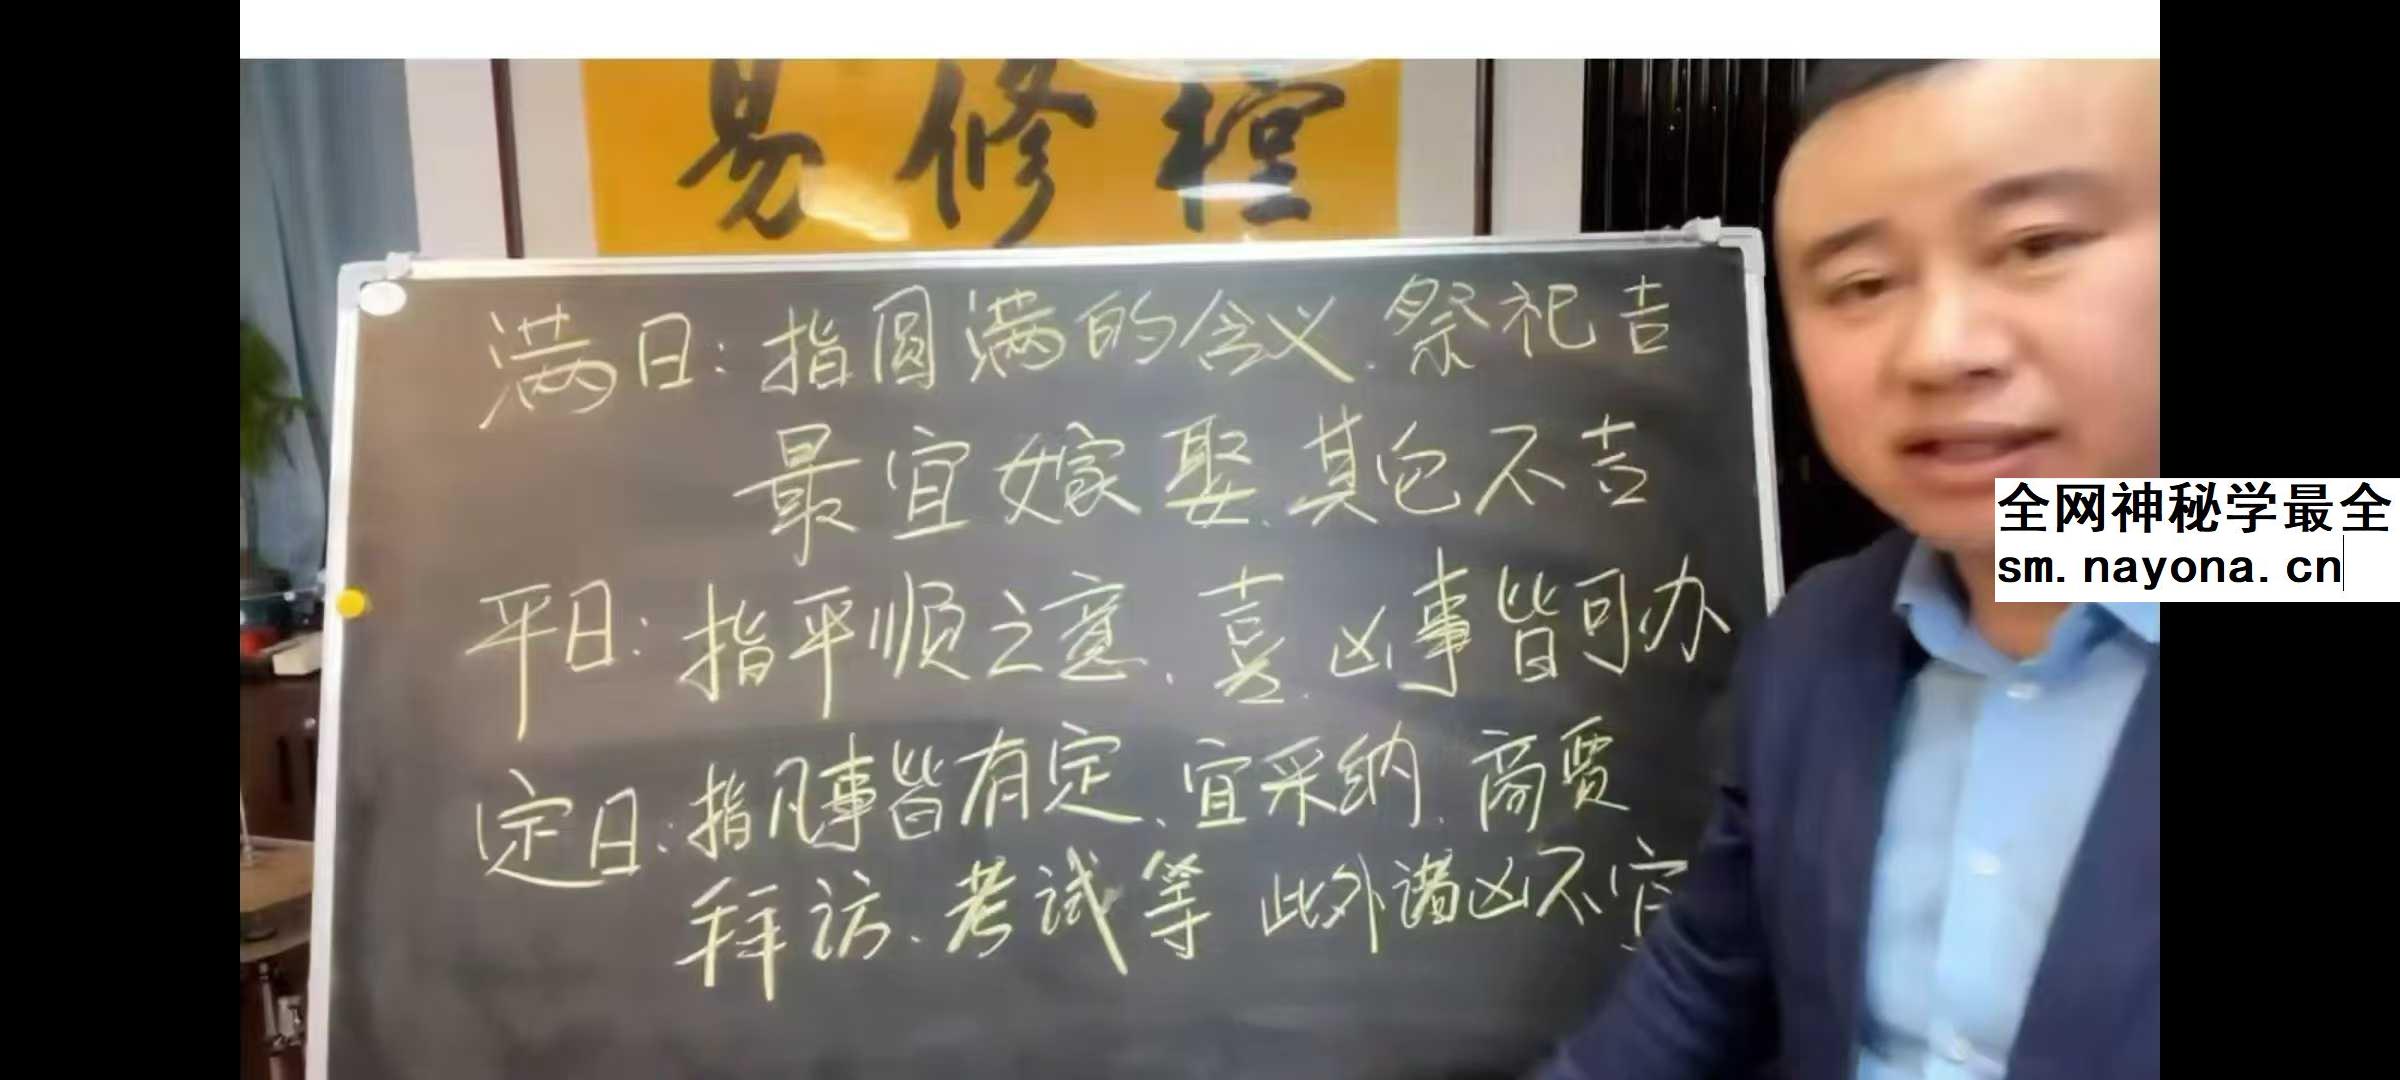 易修控
满日：指圆满的含义.祭祀吉
最宜嫁娶.其它不吉
平日：指平顺之意.喜.凶事皆可办
定日：指凡事皆有定、宜采纳.商贾
拜访.考试等 此外诸凶不宜
全网神秘学最全
sm.nayona.cn